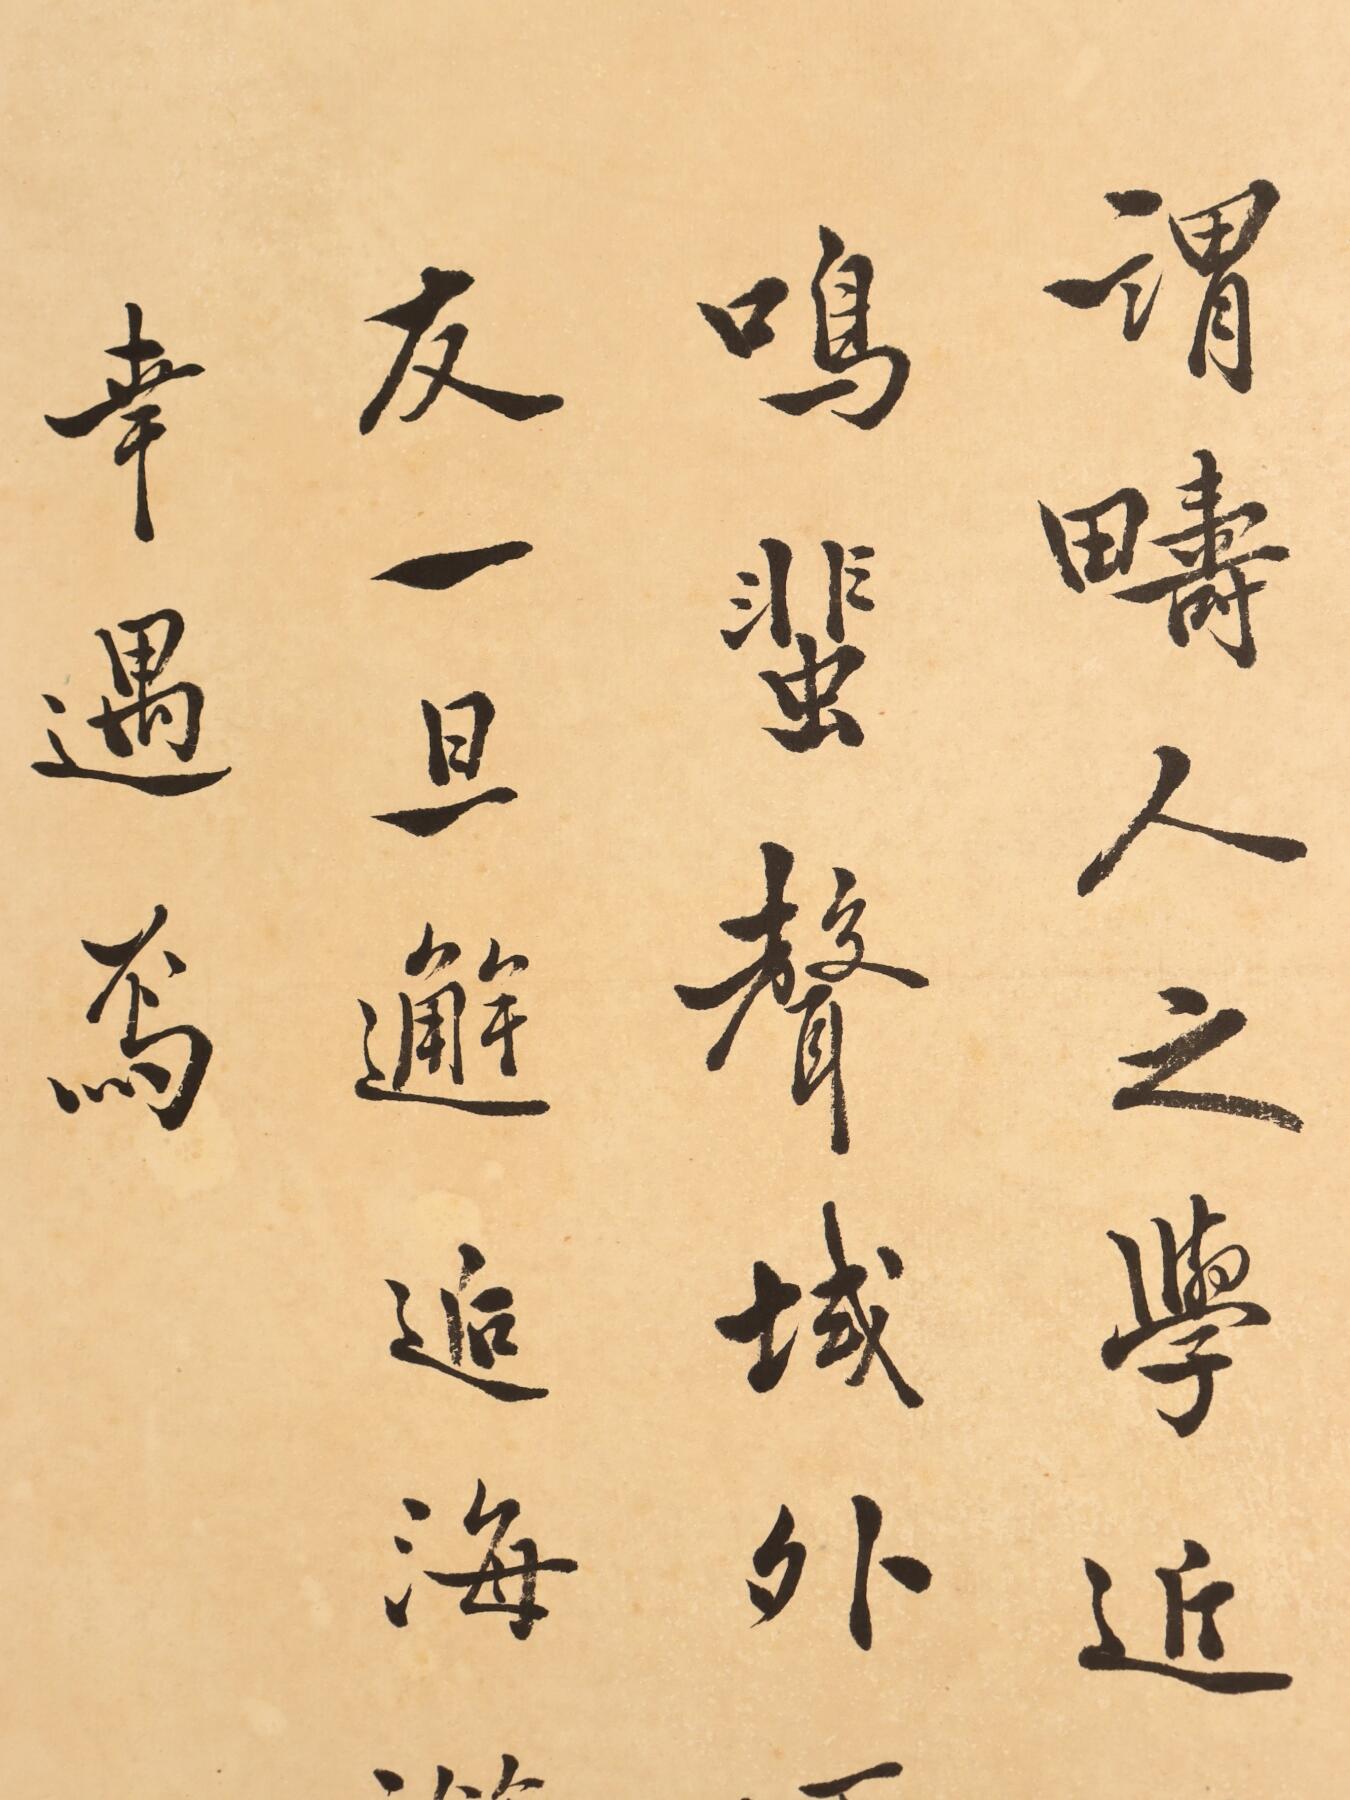 謂疇人之學近
鳴蜚聲域外
友一旦邂逅海
幸遇焉